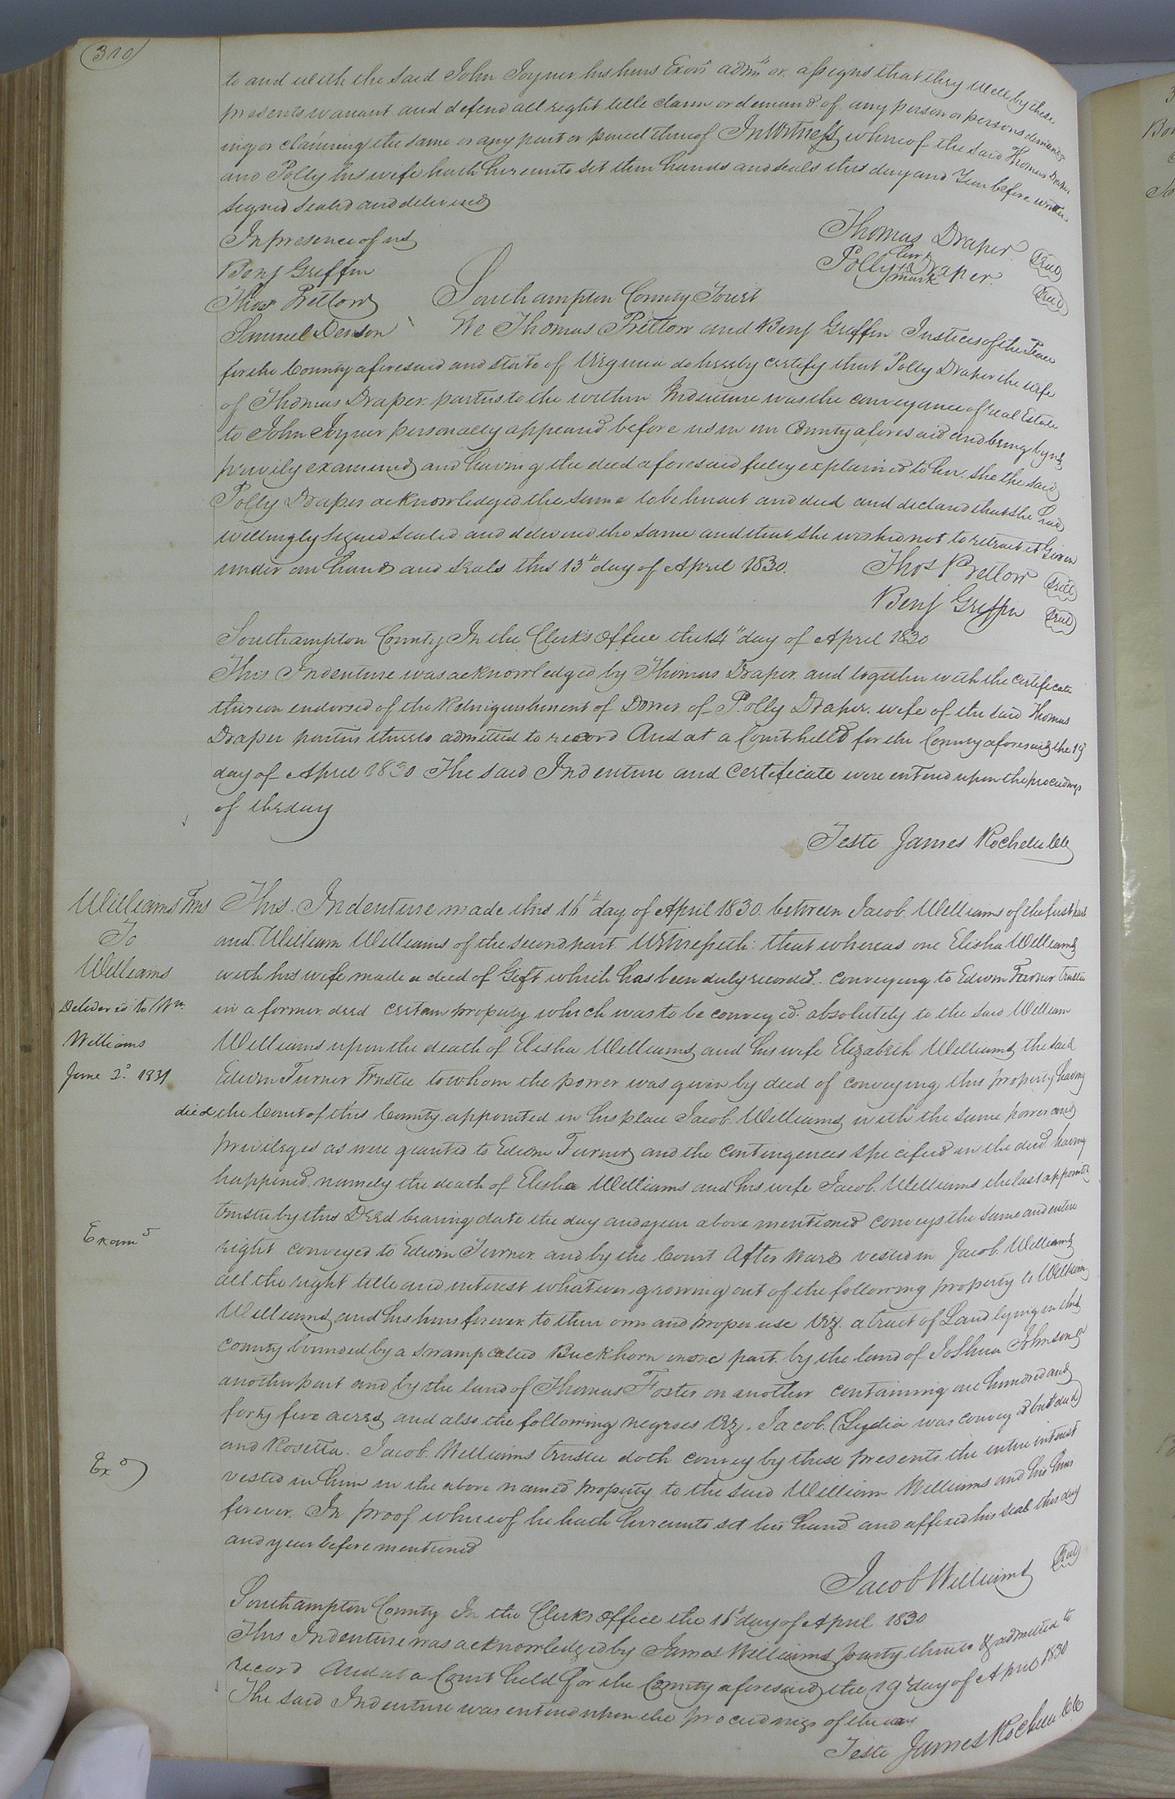 310
to and with the said John Joyner his heirs Exors admrs or assigns that they will by these
presents warrant and defend all right title claim or demand of any person or persons demand
ing or claiming the same or any part or parcel thereof In Witness whereof the said Thomas Draper
and Polly his wife hath hereunto set their hands and seals this day and Year before written
signed sealed and delivered
In presence of us
Thomas Draper seal
Benj Griffin
her
Polly Draper seal
mark
Thos Pretlow
Southampton County Towit
Samuel Denson
We Thomas Pretlow and Benj Griffin Justices of the Peace
for the County aforesaid and state of Virginia do hereby certify that Polly Draper the wife
of Thomas Draper parties to the within Indenture was the conveyance of real Estate
to John Joyner personally appeared before us in our County aforesaid and being by us
privily examined and having the deed aforesaid fully explained to her she the said
Polly Draper acknowledged the same to be her act and deed and declared that she had
willingly signed sealed and delivered the same and that she wished not to retract it Given
under our hands and seals this 13th day of April 1830.
Thos Pretlow seal
Benj Griffin seal
Southampton County In the Clerks Office the 14th day of April 1830
This Indenture was acknowledged by Thomas Draper and together with the certificate
thereon endorsed of the Relinquishment of Dower of Polly Draper wife of the said Thomas
Draper parties thereto admitted to record And at a Court held for the County aforesaid the 19
day of April 1830 The said Indenture and Certificate were entered upon the proceedings
of the day
Teste James Rochelle Clk
Williams Trus
To
Williams
Delivered to Wm
Williams
June 2d 1831
This Indenture made this 16th day of April 1830 between Jacob Williams of the first part
and William Williams of the second part Witnesseth: that whereas one Elisha Williams
with his wife made a deed of Gift which has been duly recorded. Conveying to Edwin Turner trustee
in a former deed certain property which was to be conveyed absolutely to the said William
Williams upon the death of Elisha Williams and his wife Elizabeth Williams the said
Edwin Turner Trustee to whom the power was given by deed of conveying this property having
died the Court of this County appointed in his place Jacob Williams with the same power and
privileges as were granted to Edwin Turner and the contingences specified in the deed having
happened namely the death of Elisha Williams and his wife Jacob Williams the last appointed
trustee by this Deed bearing date the day and year above mentioned conveys the same and entire
Examd
right conveyed to Edwin Turner and by the Court After wards vested in Jacob Williams
all the right title and interest whatever growing out of the following property to William
Williams and his heirs forever to their own and proper use Viz. a tract of Land lying in this
county bounded by a swamp called Buckhorn on one part by the land of Joshua Johnson on
another part and by the land of Thomas Foster on another containing one hundred and
forty five acres and also the following negroes Viz. Jacob (Lydia was conveyed but dead)
and Rosetta. Jacob Williams trustee doth convey by these presents the entire interest
Exd
vested in him in the above named property to the said William Williams and his heirs
forever. In proof whereof he hath hereunto set his hand and affixed his seal this day
and year before mentioned
Jacob Williams seal
Southampton County In the Clerks Office the 16th day of April 1830
This Indenture was acknowledged by James Williams party thereto & admitted to
record And at a Court held for the County aforesaid the 19th day of April 1830
The said Indenture was entered upon the proceedings of the day
Teste James Rochelle Clk